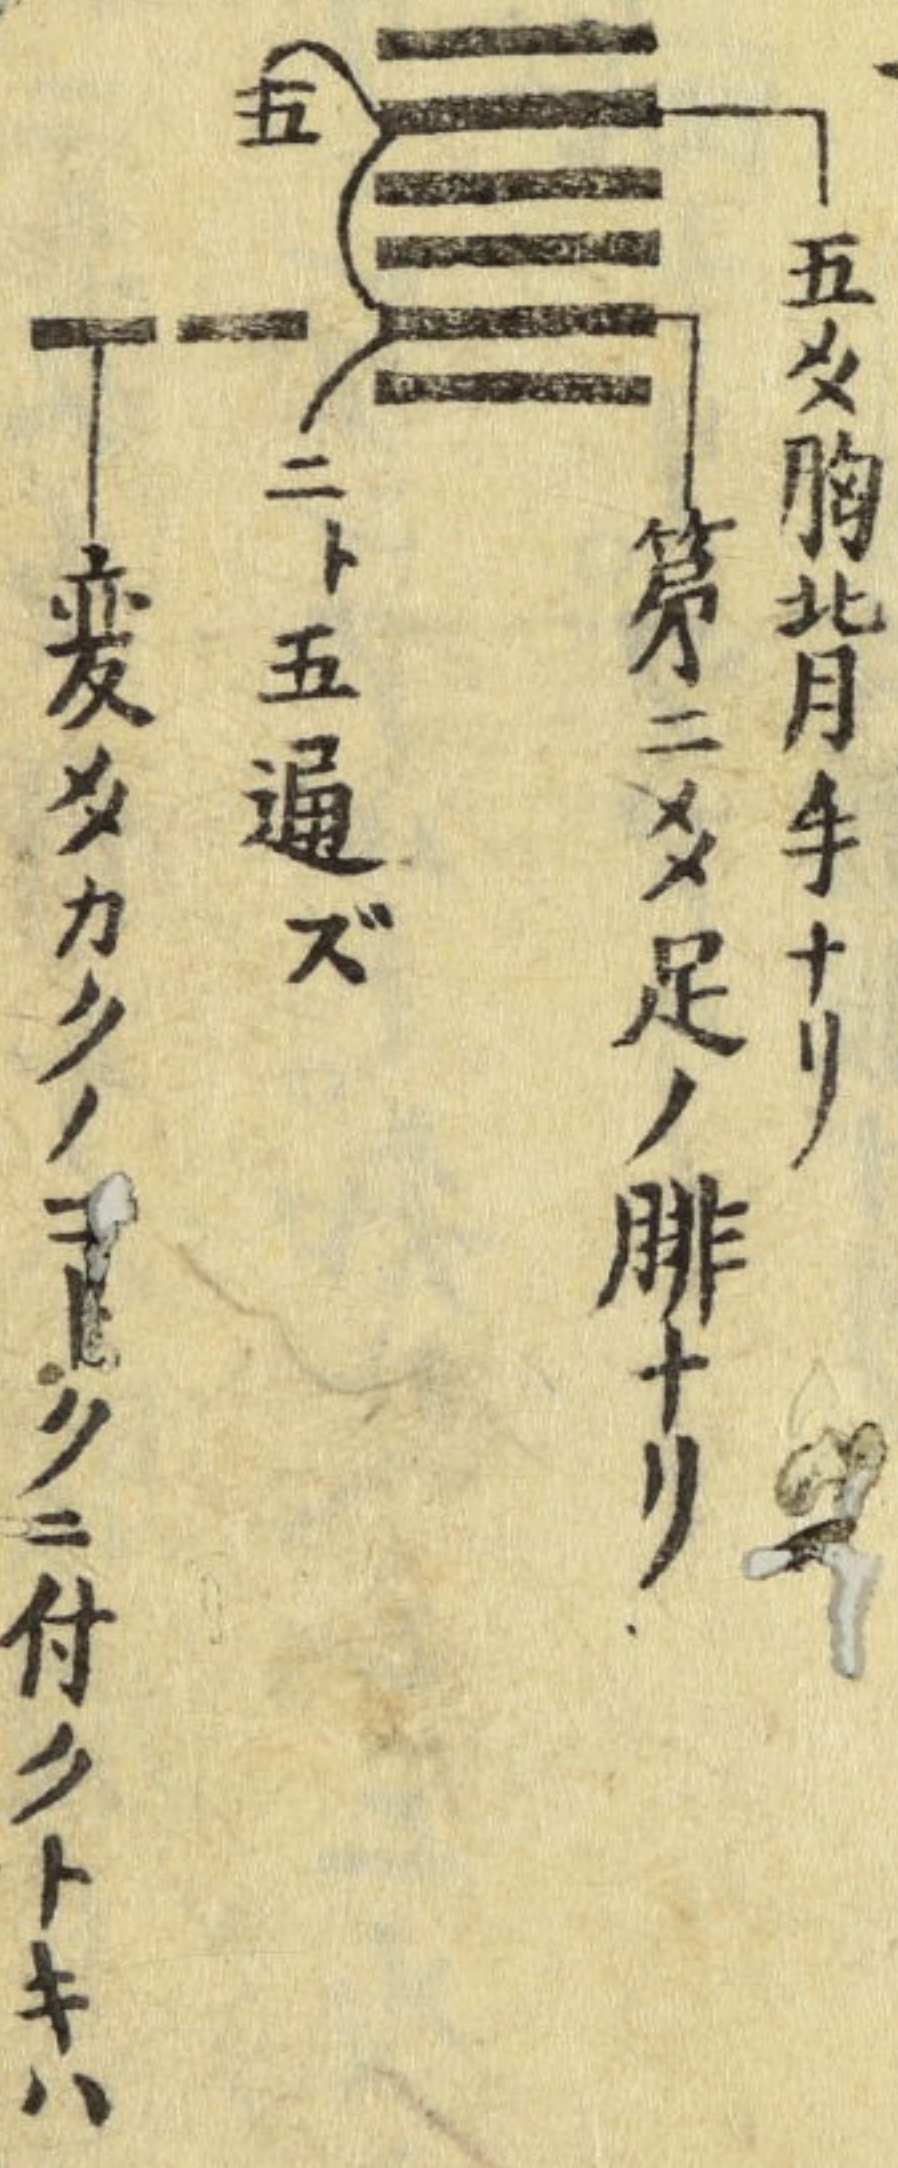 五爻胸背手ナリ
第二爻足ノ腓ナリ
五
二ト五通ズ
変爻カクノコトクニ付クトキハ